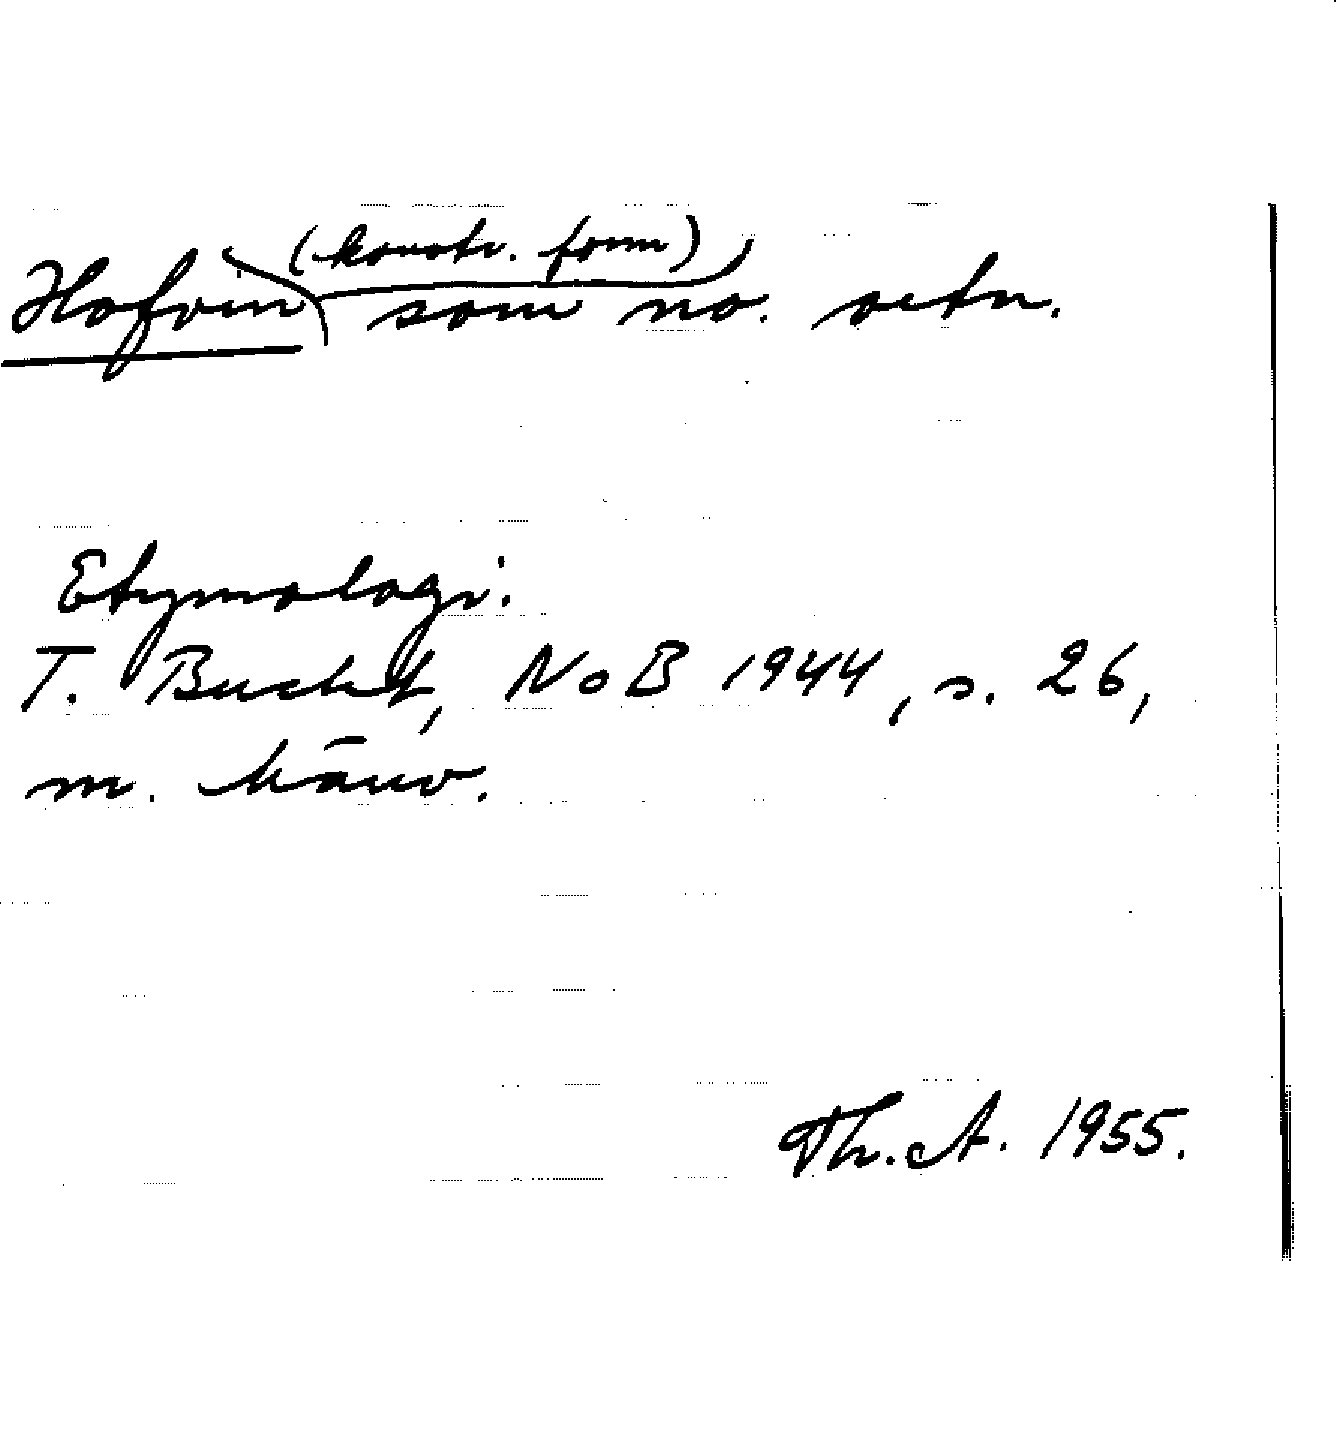 Hofvin (konstr. form) som no. ortn.
Etymologi.
T. Bucht, NoB 1944, s. 26,
m. hänv.
Th. A. 1955.